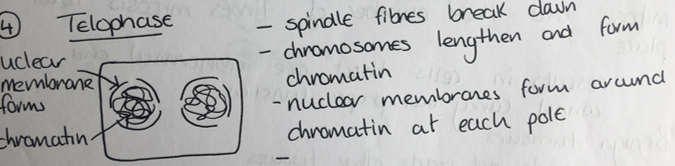 ④ Telophase
uclear
membrane
forms
chromatin
- spindle fibres break down
- chromosomes lengthen and form
chromatin
- nuclear membranes form around
chromatin at each pole
-